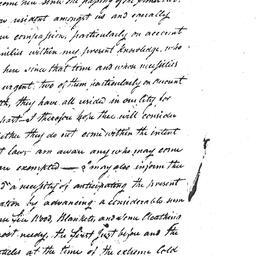 come here since the passing of
now resident amongst us and especially
our compassion, particularly on account
families within my present knowledge, who
here since that time and whose necessities
urgent, two of them particularly on account
they have all resided in our city for
part I therefore hope thee will consider
whether they do not come within the extent
law I am aware any who may come
are exempted — I may also inform thee
necessity of anticipating the present
season by advancing a considerable sum
in Fire Wood, Blankets, and some Cloathing
most needy, the first just before and the
articles at the time of the extreme Cold